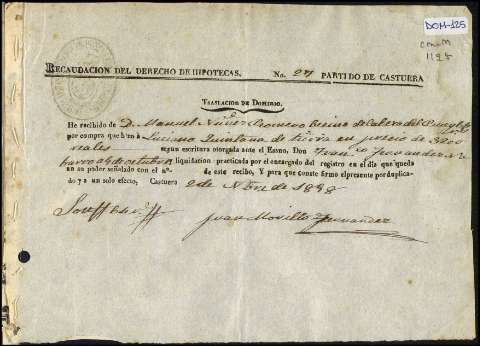 DOM-125
RECAUDACION DEL DERECHO DE HIPOTECAS. No. 27 PARTIDO DE CASTUERA
TRASLACION DE DOMINIO.
He recibido de D. Manuel Nuñez Romero Vecino de
por compra que hizo á Luciano Quintana de en precio de 3200
reales segun escritura otorgada ante el Esno. Don Juan Fernandez
de octubre liquidacion practicada por el encargado del registro en el dia que queda
en su poder señalado con el nº de este recibo, Y para que conste firmo el presente por duplica-
do y á un solo efecto, Castuera 2 de Nbre de 1838
Juan Morillo Fernandez